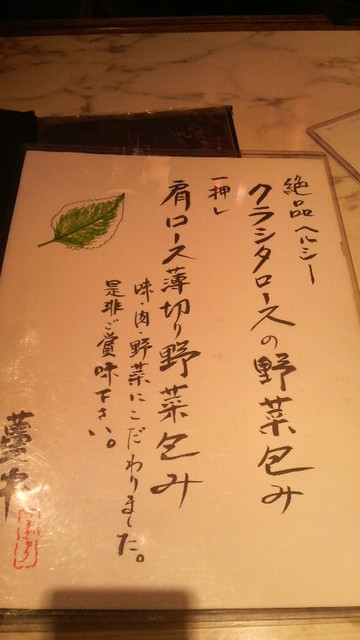 絶品ヘルシー
クラシタロースの野菜包み
一押し
肩ロース薄切り野菜包み
味・肉・野菜にこだわりました。
是非ご賞味下さい。